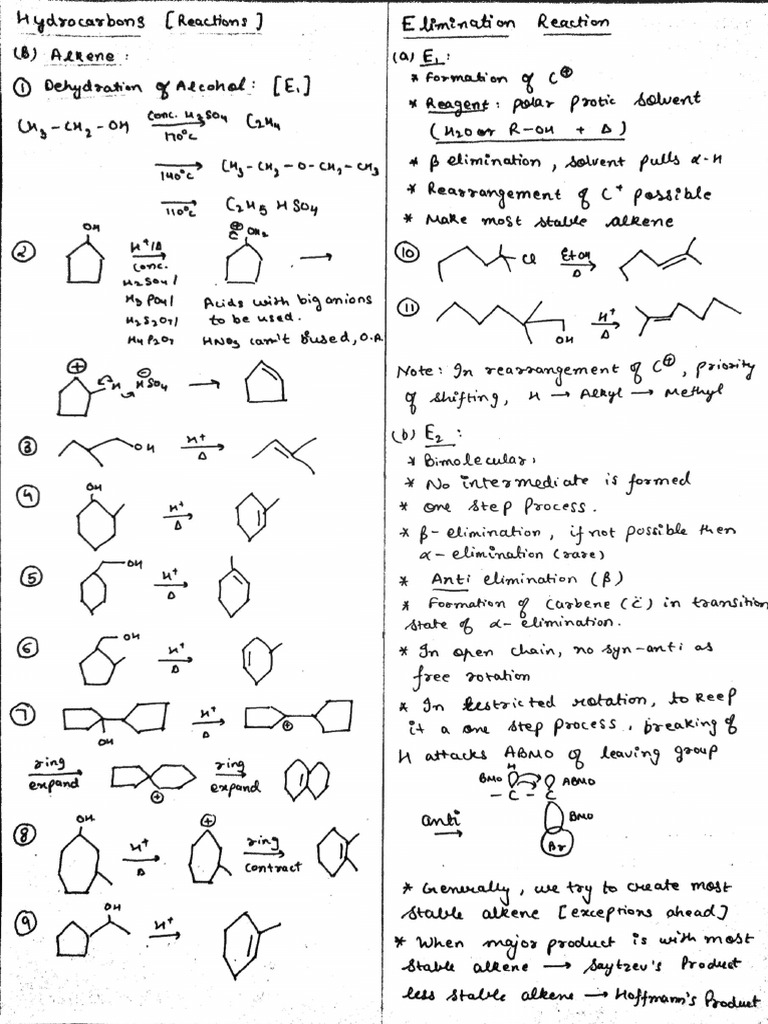 Hydrocarbons [Reactions]
(B) Alkene :
① Dehydration of Alcohol : [E₁]
CH₃ - CH₂ - OH conc. H₂SO₄ 170°C C₂H₄
140°C CH₃ - CH₂ - O - CH₂ - CH₃
110°C C₂H₅ HSO₄
② OH H⁺/Δ ⊕ OH₂
conc.
H₂SO₄/
H₃PO₄/ Acids with big anions
H₂S₂O₇/ to be used.
H₄P₂O₇ HNO₃ can't b used, O.A
⊕ H HSO₄ ⊖
③ OH H⁺ Δ
④ OH H⁺ Δ
⑤ OH H⁺ Δ
⑥ OH H⁺ Δ
⑦ OH H⁺ Δ ⊕
ring expand ⊕ ring expand
⑧ OH H⁺ Δ ⊕ ring contract
⑨ OH H⁺
Elimination Reaction
(a) E₁ :
* Formation of C⊕
* Reagent : polar protic solvent
(H₂O or R-OH + Δ)
* β elimination, solvent pulls α-H
* Rearrangement of C⁺ possible
* Make most stable alkene
⑩ Cl EtOH Δ
⑪ OH H⁺ Δ
Note : In rearrangement of C⊕, priority
of shifting, H → Alkyl → Methyl
(b) E₂ :
* Bimolecular,
* No intermediate is formed
* one step process.
* β- elimination, if not possible then
α- elimination (rare)
* Anti elimination (β)
* Formation of carbene (C̈) in transition
state of α- elimination.
* In open chain, no syn-anti as
free rotation
* In restricted rotation, to keep
it a one step process, breaking of
H attacks ABMO of leaving group
H
BMO ABMO
- C - C
anti BMO
Br
* Generally, we try to create most
stable alkene [exceptions ahead]
* When major product is with most
stable alkene → Saytzev's Product
less stable alkene → Hoffmann's Product